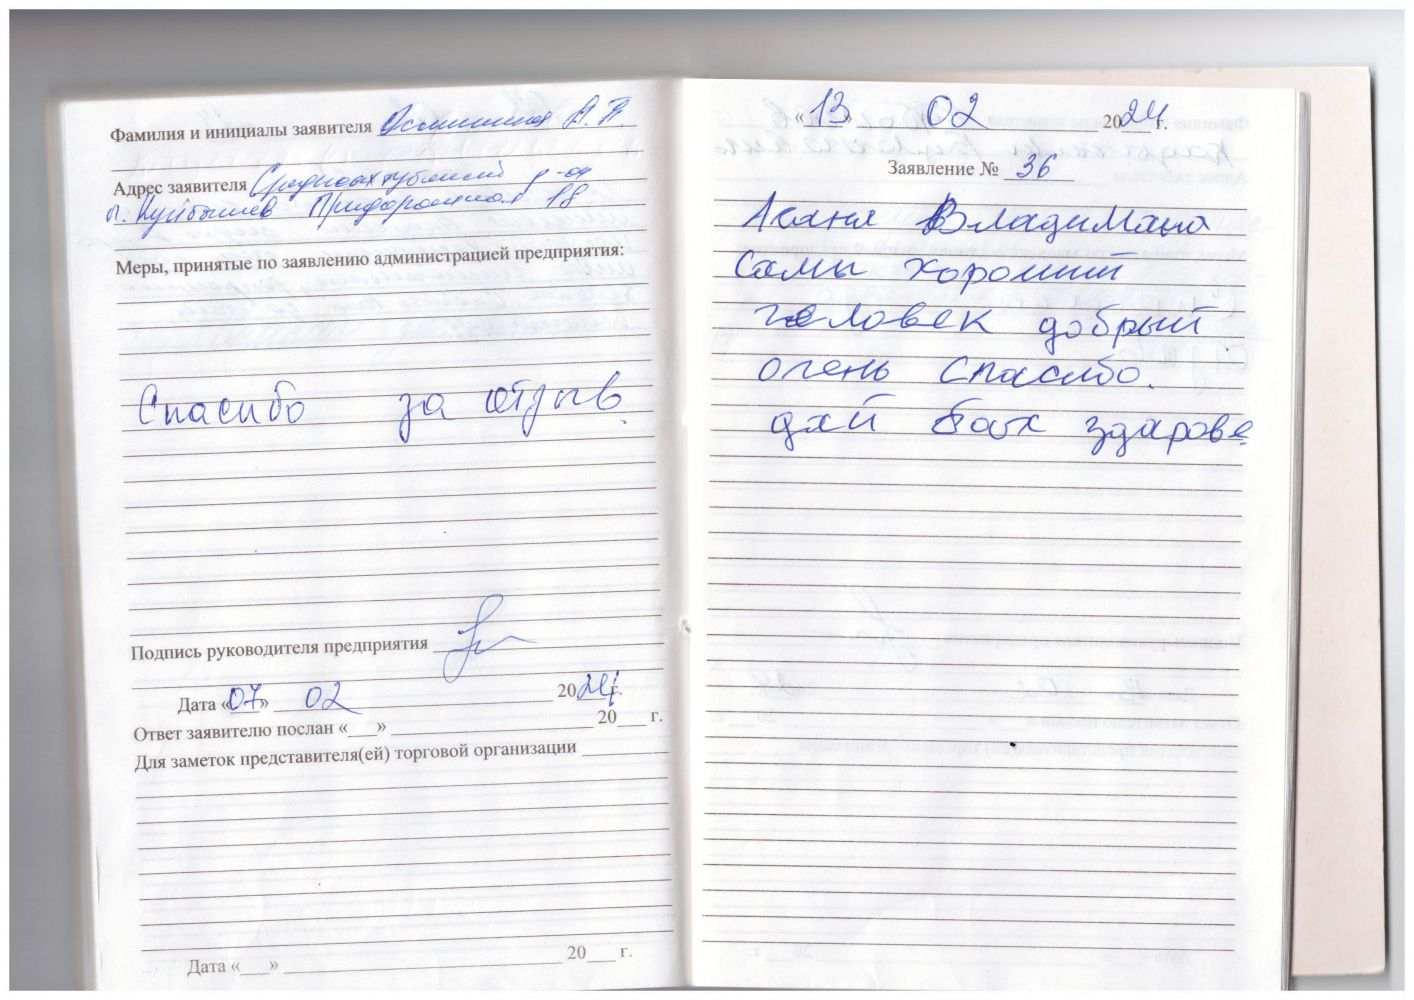 Фамилия и инициалы заявителя А. П.
Адрес заявителя Среднеахтубинский р-он
п. Куйбышев Придорожная 18
Меры, принятые по заявлению администрацией предприятия:
Спасибо за отзыв.
Подпись руководителя предприятия
Дата «07» 02 2024 г.
Ответ заявителю послан «___» 20___ г.
Для заметок представителя(ей) торговой организации
Дата «___» 20___ г.
«13» 02 2024 г.
Заявление № 36
Владимана
самы хороший
человек добрый
очень Спасибо.
дай здарове